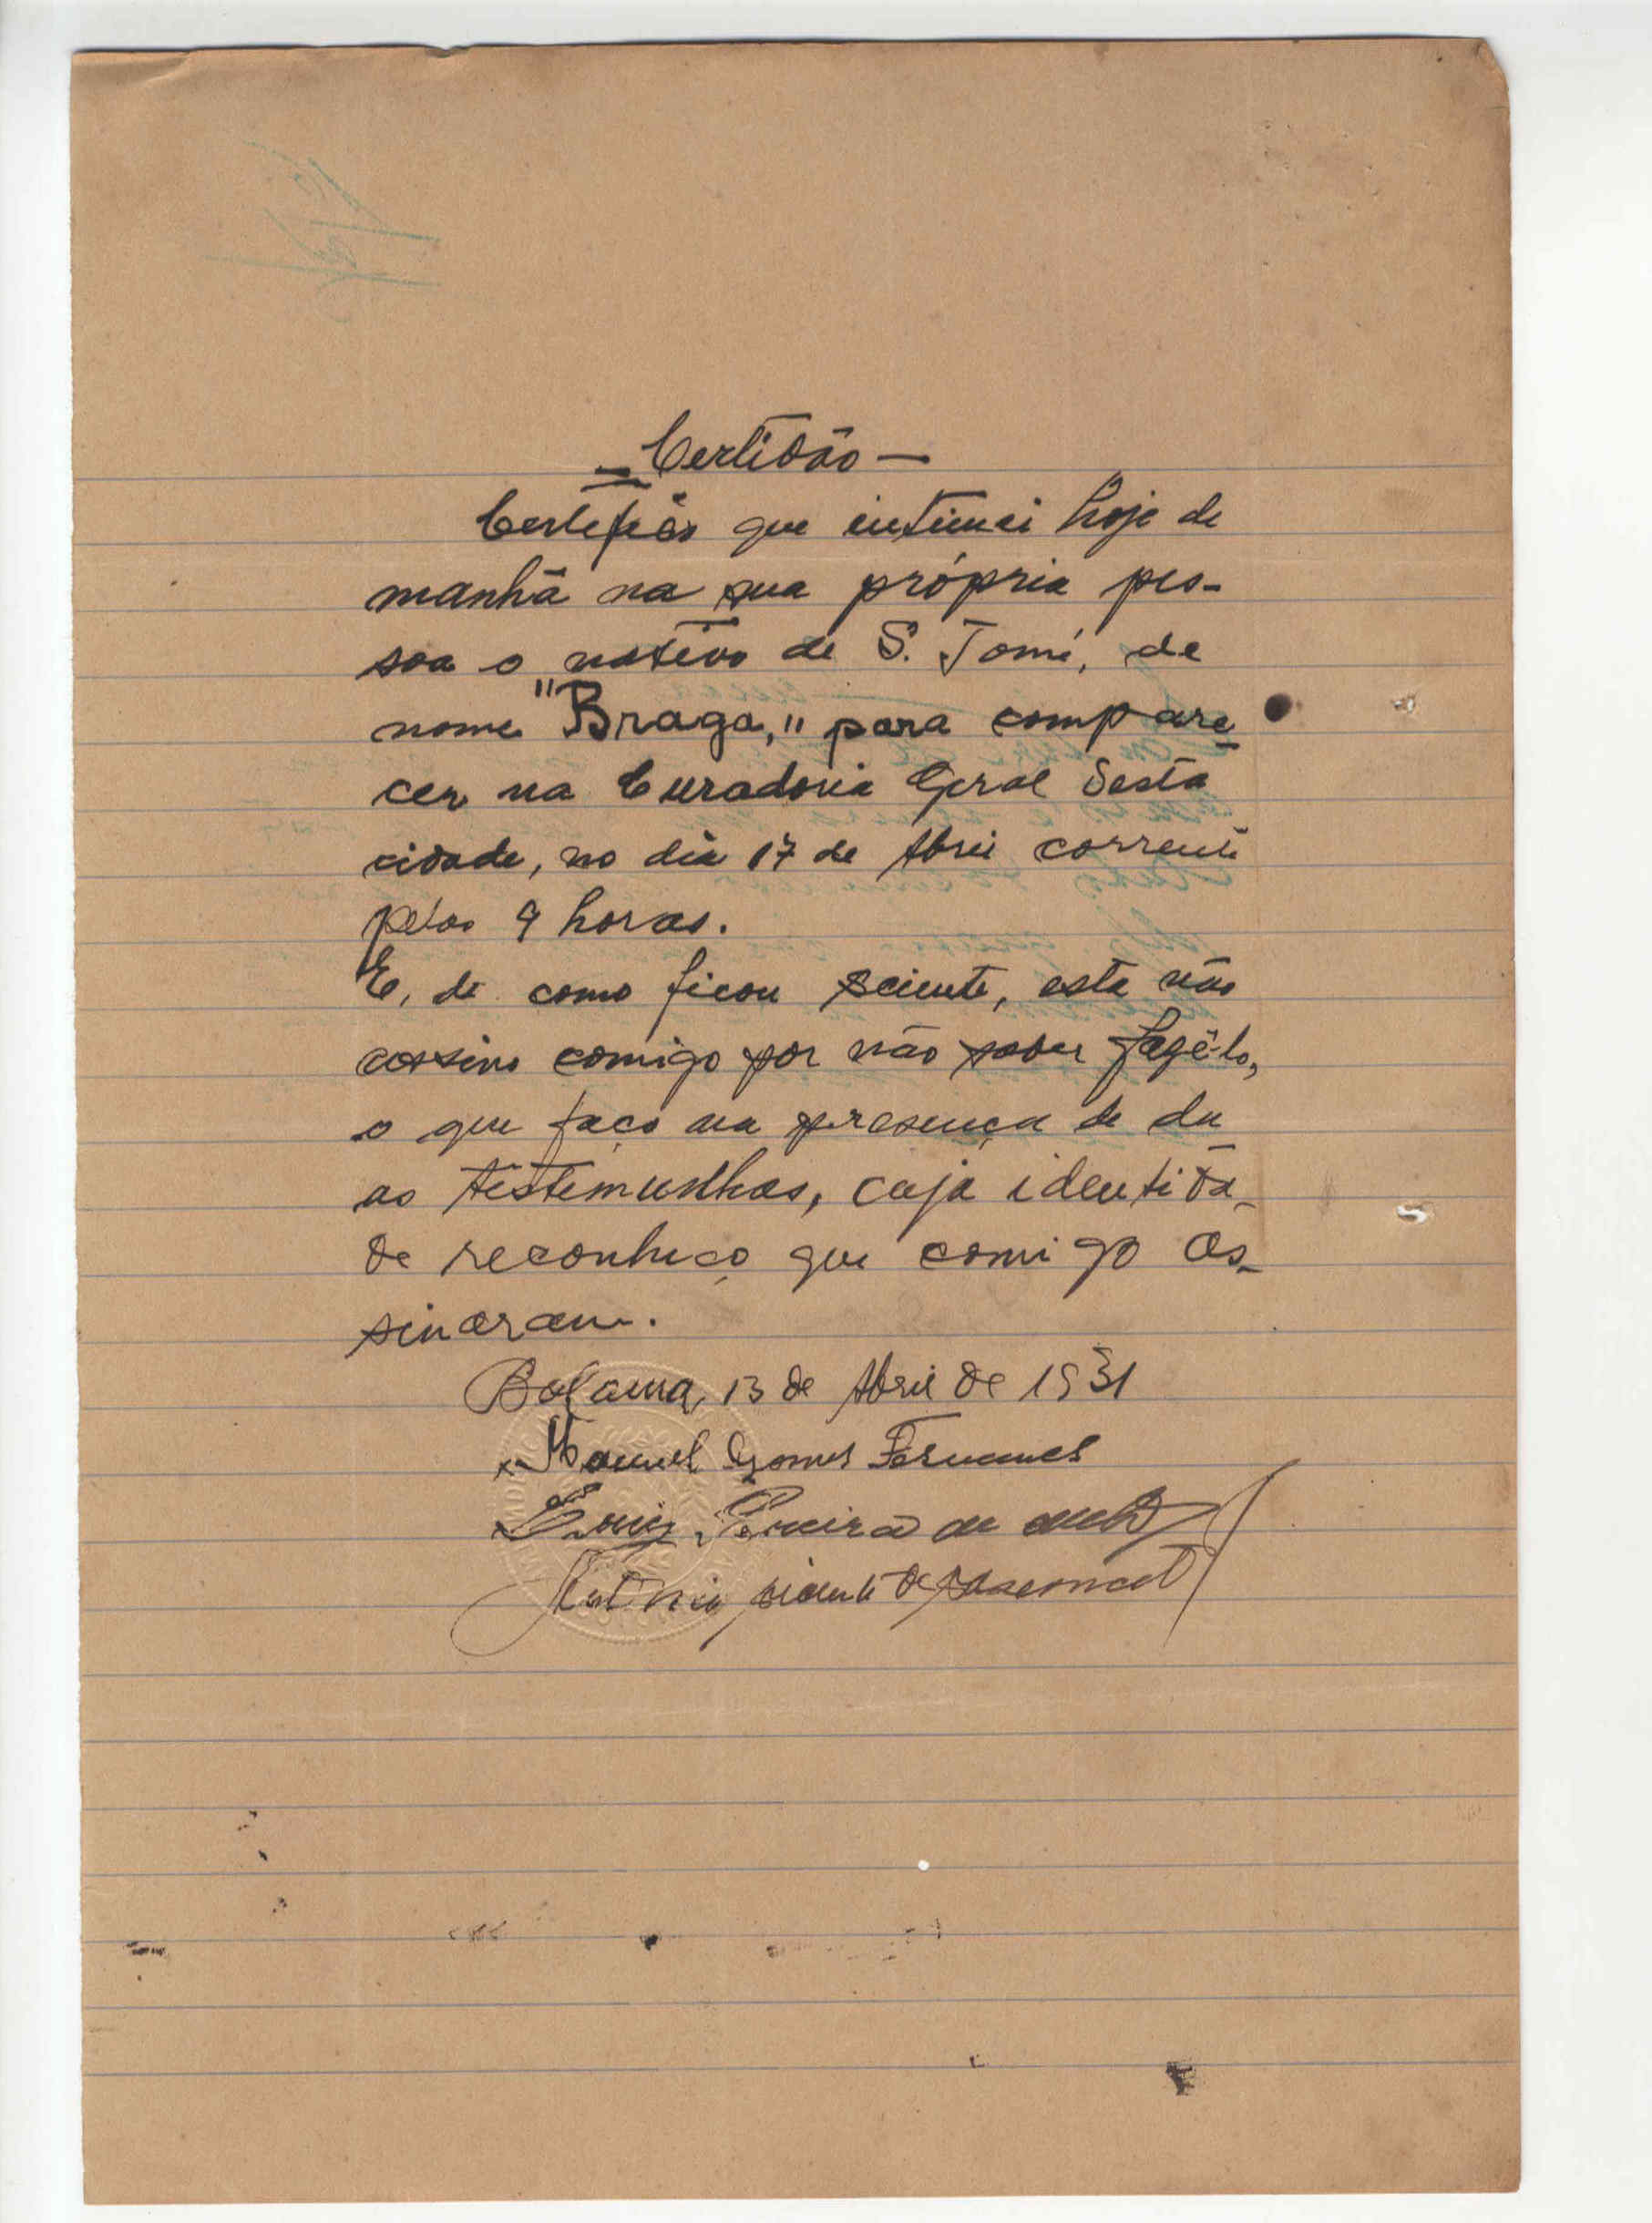 = Certidão —
Certefico que intimei hoje de
manhã na sua própria pes-
soa o nativo de S. Tomé, de
nome "Braga," para compare-
cer na Curadoria Geral desta
cidade, no dia 17 de Abril corrente
pelas 9 horas.
E, de como ficou sciente, esta não
assina comigo por não saber fazê-lo,
o que faço na presença de du-
as testemunhas, cuja identida-
de reconheço que comigo as-
sinaram.
Bolama, 13 de Abril de 1931
Manuel Gomes Fernandes
Luiz Pereira de
Antonio Vicente de Vasconcel